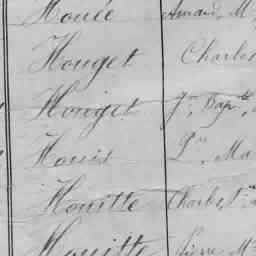 Houée Amand, M
Houget Charles
Houget Jn Bapte
Houit Ma
Houitte Charles, Fs
Houitte Pierre Me